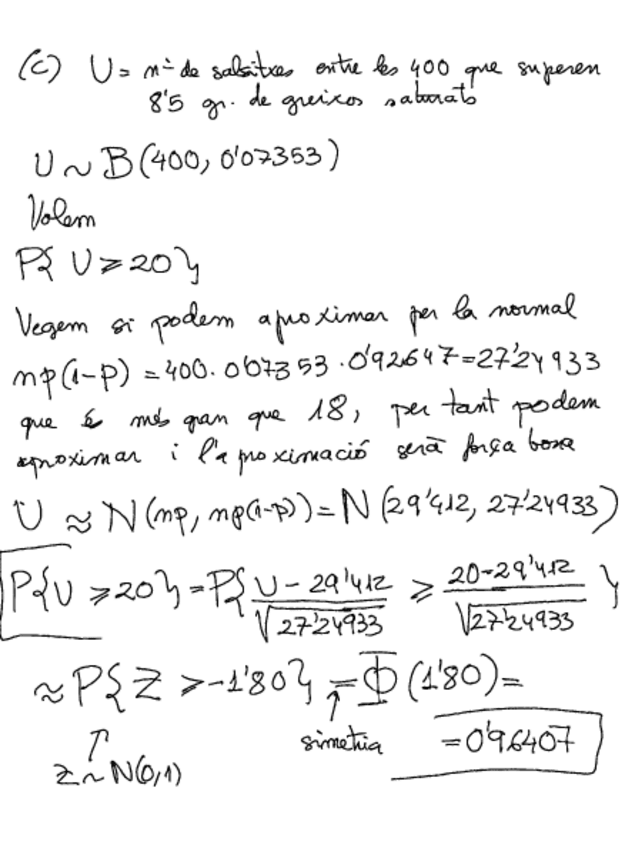 (c) U = nº de salsitxes entre les 400 que superen
8'5 gr. de greixos saturats
U ~ B(400, 0'07353)
Volem
P{ U ≥ 20 }
Vegem si podem aproximar per la normal
np(1-p) = 400 · 0'07353 · 0'92647 = 27'24933
que és més gran que 18, per tant podem
aproximar i l'aproximació serà força bona
U ≈ N(np, np(1-p)) = N(29'412, 27'24933)
P{U ≥ 20} = P{ (U - 29'412)/√27'24933 ≥ (20-29'412)/√27'24933 }
≈ P{ Z ≥ -1'80 } = Φ(1'80) =
↑ simetria
= 0'96407
↑
Z ~ N(0,1)